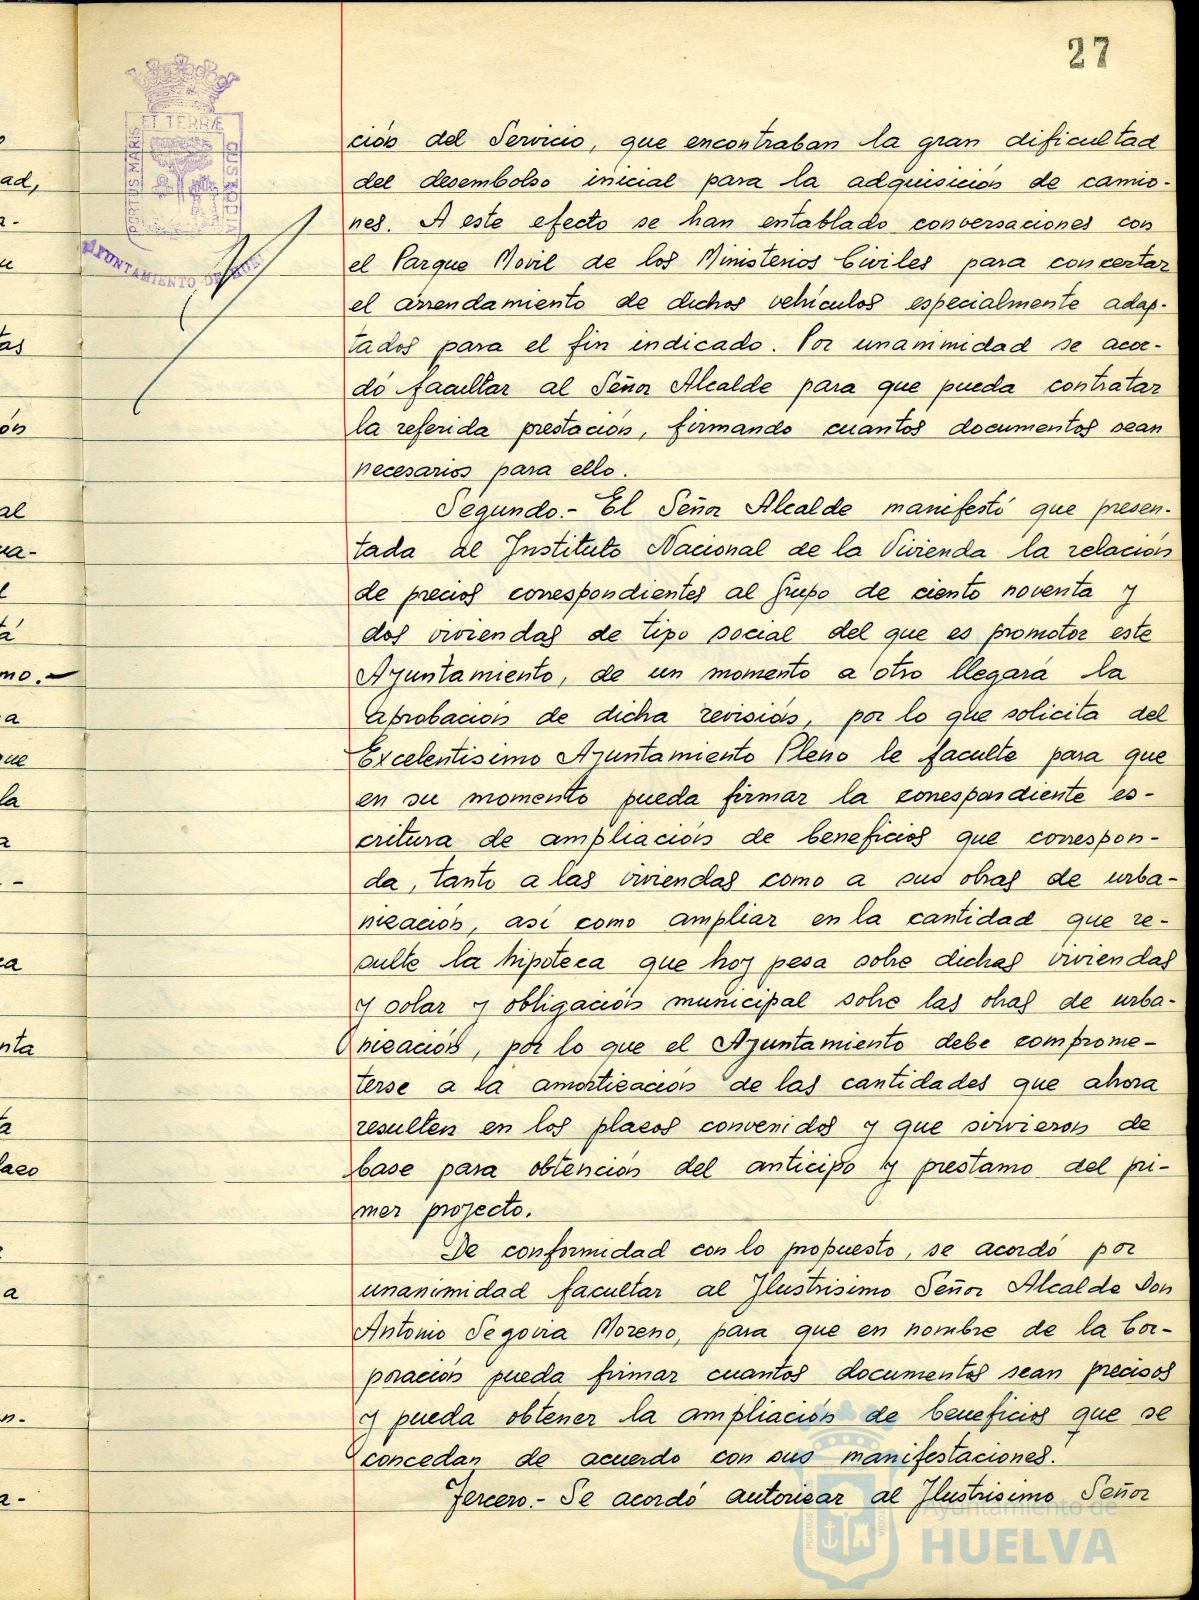 27
PORTUS MARIS
ET TERRÆ
CUSTODIA
AYUNTAMIENTO DE
ción del Servicio, que encontraban la gran dificultad
del desembolso inicial para la adquisición de camio-
nes. A este efecto se han entablado conversaciones con
el Parque Movil de los Ministerios Civiles para concertar
el arrendamiento de dichos vehículos especialmente adap-
tados para el fin indicado. Por unanimidad se acor-
dó facultar al Señor Alcalde para que pueda contratar
la referida prestación, firmando cuantos documentos sean
necesarios para ello.
Segundo.- El Señor Alcalde manifestó que presen-
tada al Instituto Nacional de la Vivienda la relación
de precios correspondientes al Grupo de ciento noventa y
dos viviendas de tipo social del que es promotor este
Ayuntamiento, de un momento a otro llegará la
aprobación de dicha revisión, por lo que solicita del
Excelentisimo Ayuntamiento Pleno le faculte para que
en su momento pueda firmar la correspondiente es-
critura de ampliación de beneficios que correspon-
da, tanto a las viviendas como a sus obras de urba-
nización, así como ampliar en la cantidad que re-
sulte la hipoteca que hoy pesa sobre dichas viviendas
y solar y obligación municipal sobre las obras de urba-
nización, por lo que el Ayuntamiento debe comprome-
terse a la amortización de las cantidades que ahora
resulten en los plazos convenidos y que sirvieron de
base para obtención del anticipo y prestamo del pri-
mer proyecto.
De conformidad con lo propuesto, se acordó por
unanimidad facultar al Ilustrisimo Señor Alcalde Don
Antonio Segovia Moreno, para que en nombre de la Cor-
poración pueda firmar cuantos documentos sean precisos
y pueda obtener la ampliación de beneficios que se
concedan de acuerdo con sus manifestaciones.
Tercero.- Se acordó autorizar al Ilustrisimo Señor
Ayuntamiento de
HUELVA